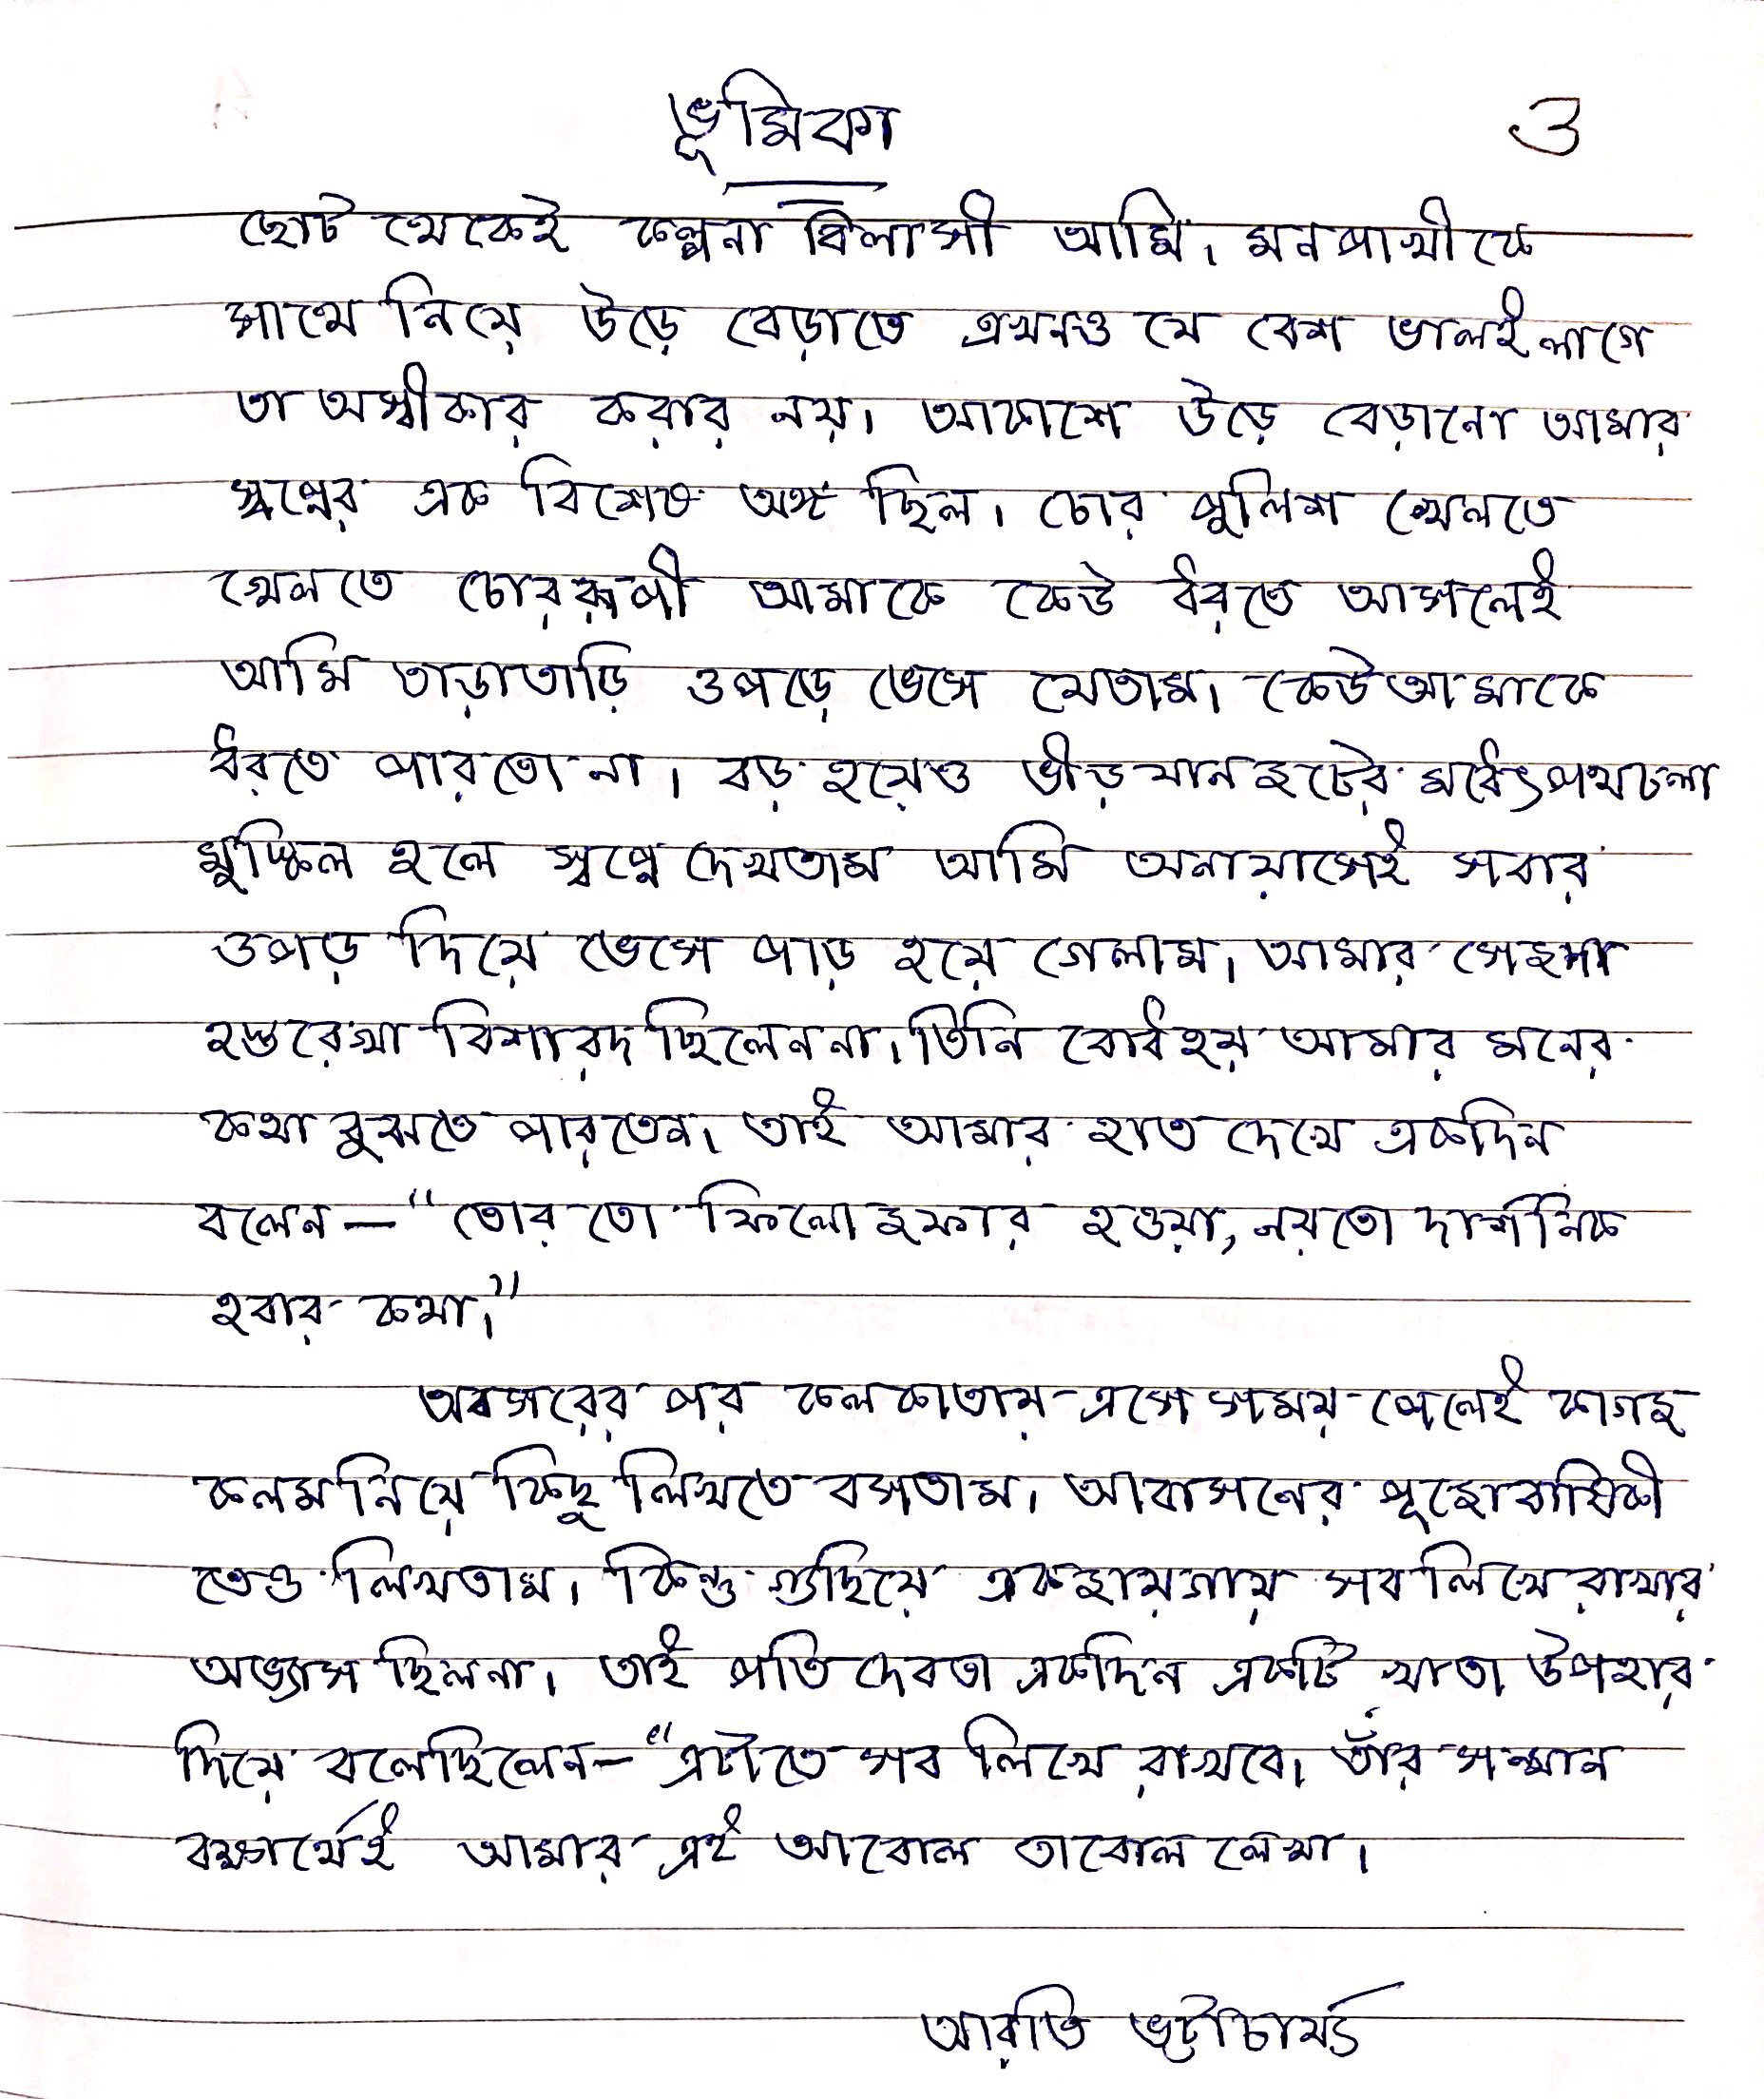 ভূমিকা
৩
ছোট থেকেই কল্পনা বিলাসী আমি। মনপাখীকে
সাথে নিয়ে উড়ে বেড়াতে এখনও যে বেশ ভালই লাগে
তা অস্বীকার করার নয়। আকাশে উড়ে বেড়ানো আমার
স্বপ্নের এক বিশেষ অঙ্গ ছিল। চোর পুলিশ খেলতে
খেলতে চোররূপী আমাকে কেউ ধরতে আসলেই
আমি তাড়াতাড়ি ওপড়ে ভেসে যেতাম। কেউ আমাকে
ধরতে পারতো না। বড় হয়েও ভীড় যানজটের মধ্যে পথচলা
মুস্কিল হলে স্বপ্নে দেখতাম আমি অনায়াসেই সবার
ওপড় দিয়ে ভেসে পাড় হয়ে গেলাম। আমার সেজদা
হস্তরেখা বিশারদ ছিলেন না। তিনি বোধহয় আমার মনের
কথা বুঝতে পারতেন। তাই আমার হাত দেখে একদিন
বলেন — "তোর তো ফিলোজফার হওয়া, নয়তো দার্শনিক
হবার কথা।"
অবসরের পর কলকাতায় এসে সময় পেলেই কাগজ
কলম নিয়ে কিছু লিখতে বসতাম। আবাসনের পূজোবার্ষিকী
তেও লিখতাম। কিন্তু গুছিয়ে একজায়গায় সব লিখে রাখার
অভ্যাস ছিলনা। তাই পতি দেবতা একদিন একটি খাতা উপহার
দিয়ে বলেছিলেন — "এটাতে সব লিখে রাখবে। তাঁর সন্মান
রক্ষার্থেই আমার এই আবোল তাবোল লেখা।
আরতি ভট্টাচার্য্য